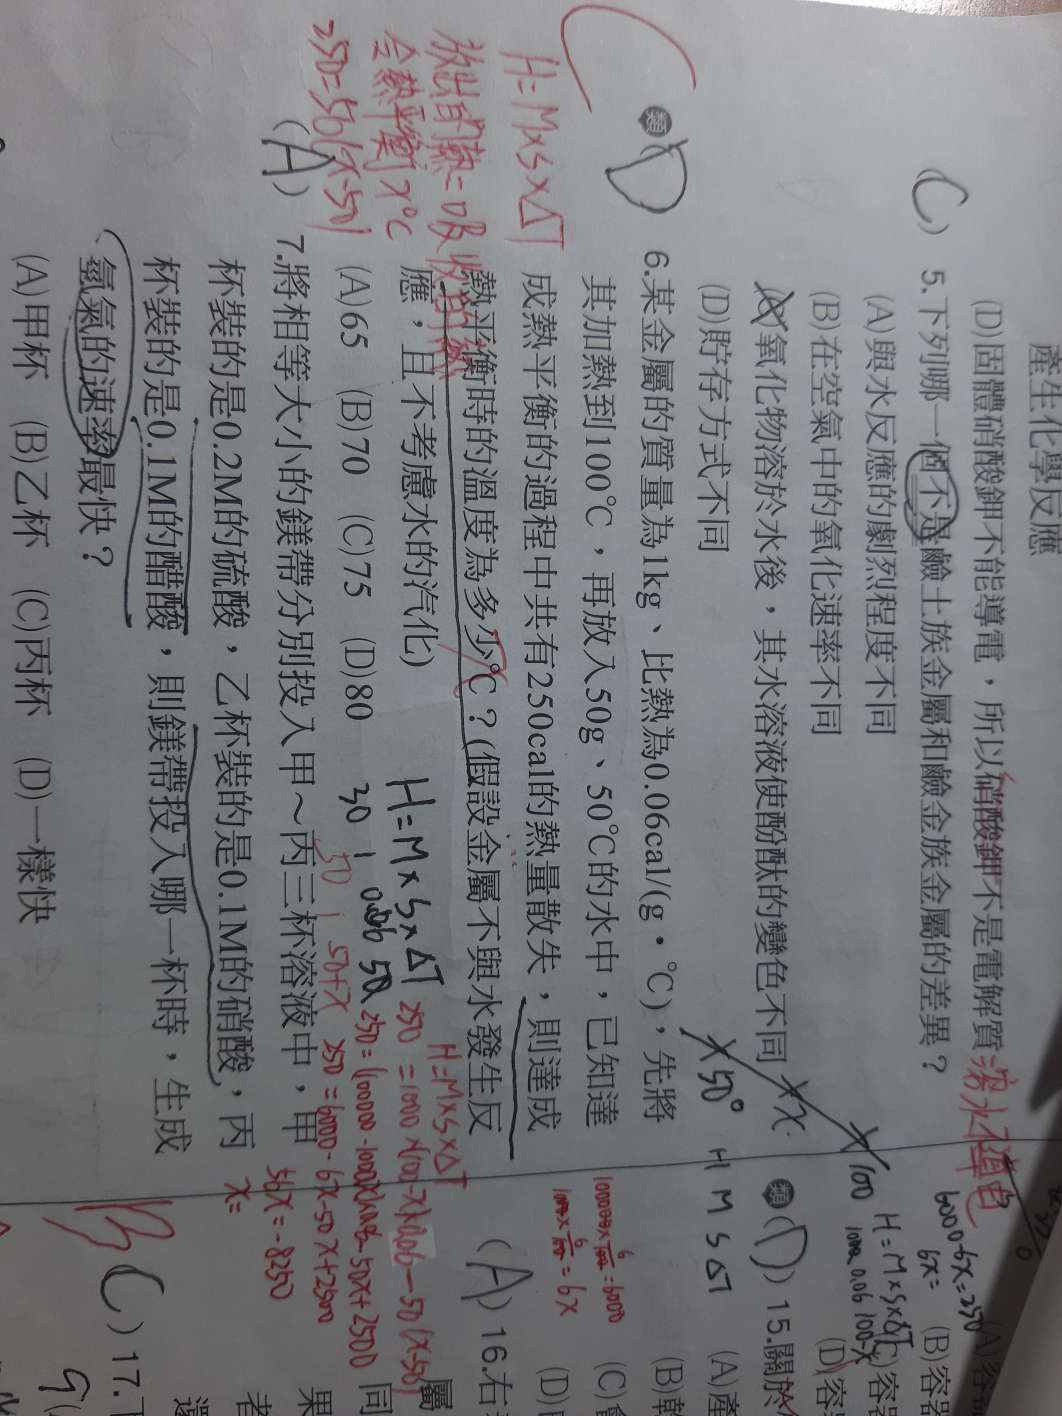 產生化學反應
(D)固體硝酸鉀不能導電，所以硝酸鉀不是電解質
溶水導電
(C) 5.下列哪一個不是鹼土族金屬和鹼金族金屬的差異？
(A)與水反應的劇烈程度不同
(B)在空氣中的氧化速率不同
(C)氧化物溶於水後，其水溶液使酚酞的變色不同
(D)貯存方式不同
類(D) 6.某金屬的質量為1kg、比熱為0.06cal/(g・°C)，先將
其加熱到100°C，再放入50g、50°C的水中，已知達
成熱平衡的過程中共有250cal的熱量散失，則達成
熱平衡時的溫度為多少°C？(假設金屬不與水發生反
應，且不考慮水的汽化)
(A)65 (B)70 (C)75 (D)80
H=M×S×ΔT
放出的熱=吸收的熱
令熱平衡 x°C
250=50(x-50)
H=M×S×ΔT
H=M×S×ΔT
(A) 7.將相等大小的鎂帶分別投入甲～丙三杯溶液中，甲
杯裝的是0.2M的硫酸，乙杯裝的是0.1M的硝酸，丙
杯裝的是0.1M的醋酸，則鎂帶投入哪一杯時，生成
氫氣的速率最快？
(A)甲杯 (B)乙杯 (C)丙杯 (D)一樣快
250=6000-6x-50x+2500
56x=-8250
x=
6000-6x=250
6x=
H=M×S×ΔT
x 100
x 50°
H M S ΔT
(A)容
(B)容器
(C)容器
(D)容
類(D) 15.關於
(A)產
(B)乾
(C)
(D)
(A) 16.右
屬
同
果
者
還
C) 17.